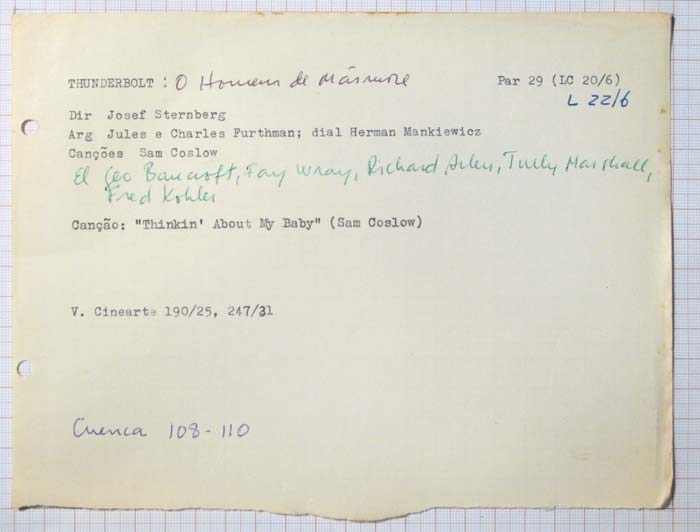 THUNDERBOLT : O Homem de Mármore Par 29 (LC 20/6)
L 22/6
Dir Josef Sternberg
Arg Jules e Charles Furthman; dial Herman Mankiewicz
Canções Sam Coslow
El Geo Bancroft, Fay Wray, Richard Arlen, Tully Marshall,
Fred Kohler
Canção: "Thinkin' About My Baby" (Sam Coslow)
V. Cinearte 190/25, 247/31
Cuenca 108-110